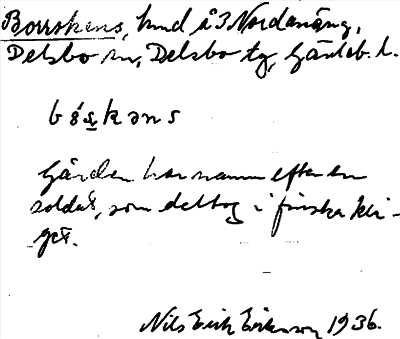 Borrskens, hmd å 3 Nordanäng,
Delsbo sn, Delsbo tg, Gävleb. l.
bo̊s̲kəns
Gården har namn efter en
soldat, som deltog i finska kri-
get.
Nils Erik Eriksson 1936.